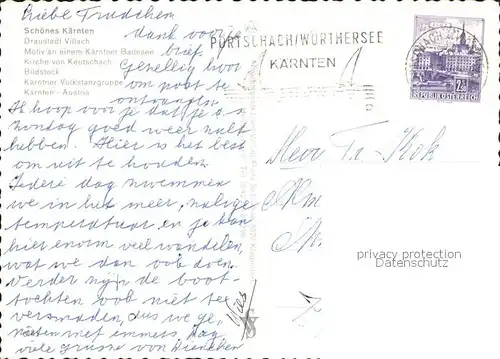 Liebe Trudchen
Schönes Kärnten
Draustadt Villach
Motiv an einem Kärntner Badesee
Kirche von Keutschach
Bildstock
Kärntner Volkstanzgruppe
Kärnten - Austria
dank voor je
brief.
Gezellig hoor
om post te
ontvangen
Ik hoop voor je dat je a.s
zondag goed weer zult
hebben. Hier is het best
om uit te houden.
Iedere dag zwemmen
we in het meer, zalige
temperatuur en je kan
hier enorm veel wandelen,
wat we dan ook doen
verder zijn de boot-
tochten ook niet te
versmaden, dus we ge-
nieten met emmers, dag
viele grüsse von
PÖRTSCHACH/WÖRTHERSEE
KÄRNTEN
REPUBLIK ÖSTERREICH
Herr Tr. Kok
privacy protection
Datenschutz